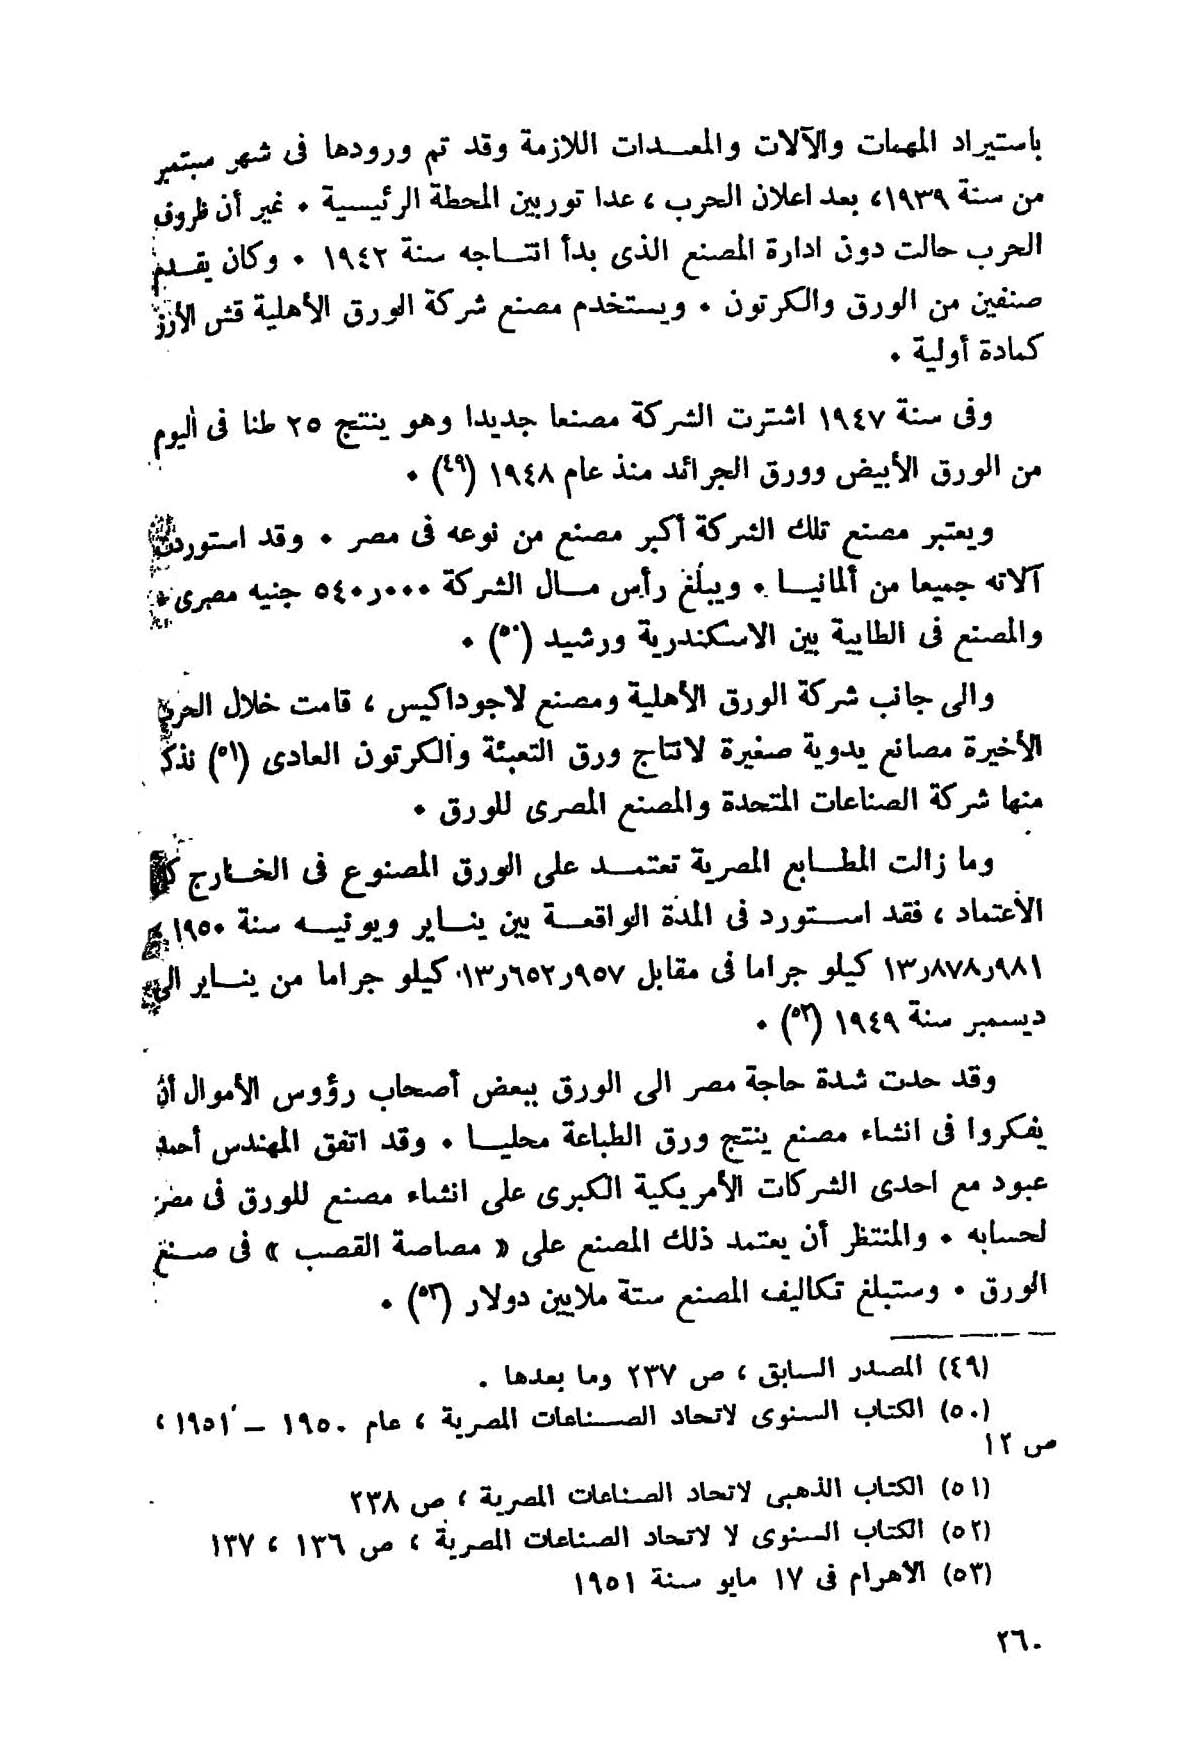 باستيراد المهمات والآلات والمعــدات اللازمة وقد تم ورودها فى شهر سبتمبر
من سنة ١٩٣٩، بعد اعلان الحرب ، عدا توربين المحطة الرئيسية . غير أن ظروف
الحرب حالت دون ادارة المصنع الذى بدأ انتــاجه سنة ١٩٤٢ . وكان يقــدم
صنفين من الورق والكرتون . ويستخدم مصنع شركة الورق الأهلية قش الأرز
كمادة أولية .
وفى سنة ١٩٤٧ اشترت الشركة مصنعا جديدا وهو ينتج ٢٥ طنا فى اليوم
من الورق الأبيض وورق الجرائد منذ عام ١٩٤٨ (٤٩) .
ويعتبر مصنع تلك الشركة أكبر مصنع من نوعه فى مصر . وقد استوردت
آلاته جميعا من ألمانيــا . ويبلغ رأس مــال الشركة ٥٤٠ر٠٠٠ جنيه مصرى .
والمصنع فى الطابية بين الاسكندرية ورشيد (٥٠) .
والى جانب شركة الورق الأهلية ومصنع لاجوداكيس ، قامت خلال الحرب
الأخيرة مصانع يدوية صغيرة لانتاج ورق التعبئة والكرتون العادى (٥١) نذكر
منها شركة الصناعات المتحدة والمصنع المصرى للورق .
وما زالت المطــابع المصرية تعتمــد على الورق المصنوع فى الخــارج كل
الأعتماد ، فقد اســتورد فى المدة الواقعــة بين ينــاير ويونيــه سنة ١٩٥٠
١٣ر٨٧٨ر٩٨١ كيلو جراما فى مقابل ١٣ر٦٥٢ر٩٥٧ كيلو جراما من ينــاير الى
ديسمبر سنة ١٩٤٩ (٥٢) .
وقد حدت شدة حاجة مصر الى الورق ببعض أصحاب رؤوس الأموال أن
يفكروا فى انشاء مصنع ينتج ورق الطباعة محليــا . وقد اتفق المهندس أحمد
عبود مع احدى الشركات الأمريكية الكبرى على انشاء مصنع للورق فى مصر
لحسابه . والمنتظر أن يعتمد ذلك المصنع على « مصاصة القصب » فى صــنع
الورق . وستبلغ تكاليف المصنع ستة ملايين دولار (٥٣) .
(٤٩) المصدر السابق ، ص ٢٣٧ وما بعدها .
(٥٠) الكتاب السنوى لاتحاد الصــناعات المصرية ، عام ١٩٥٠ – ١٩٥١ ،
ص ١٢
(٥١) الكتاب الذهبى لاتحاد الصناعات المصرية ، ص ٢٣٨
(٥٢) الكتاب السنوى لا لاتحاد الصناعات المصرية ، ص ١٣٦ ، ١٣٧
(٥٣) الاهرام فى ١٧ مايو سنة ١٩٥١
٢٦٠